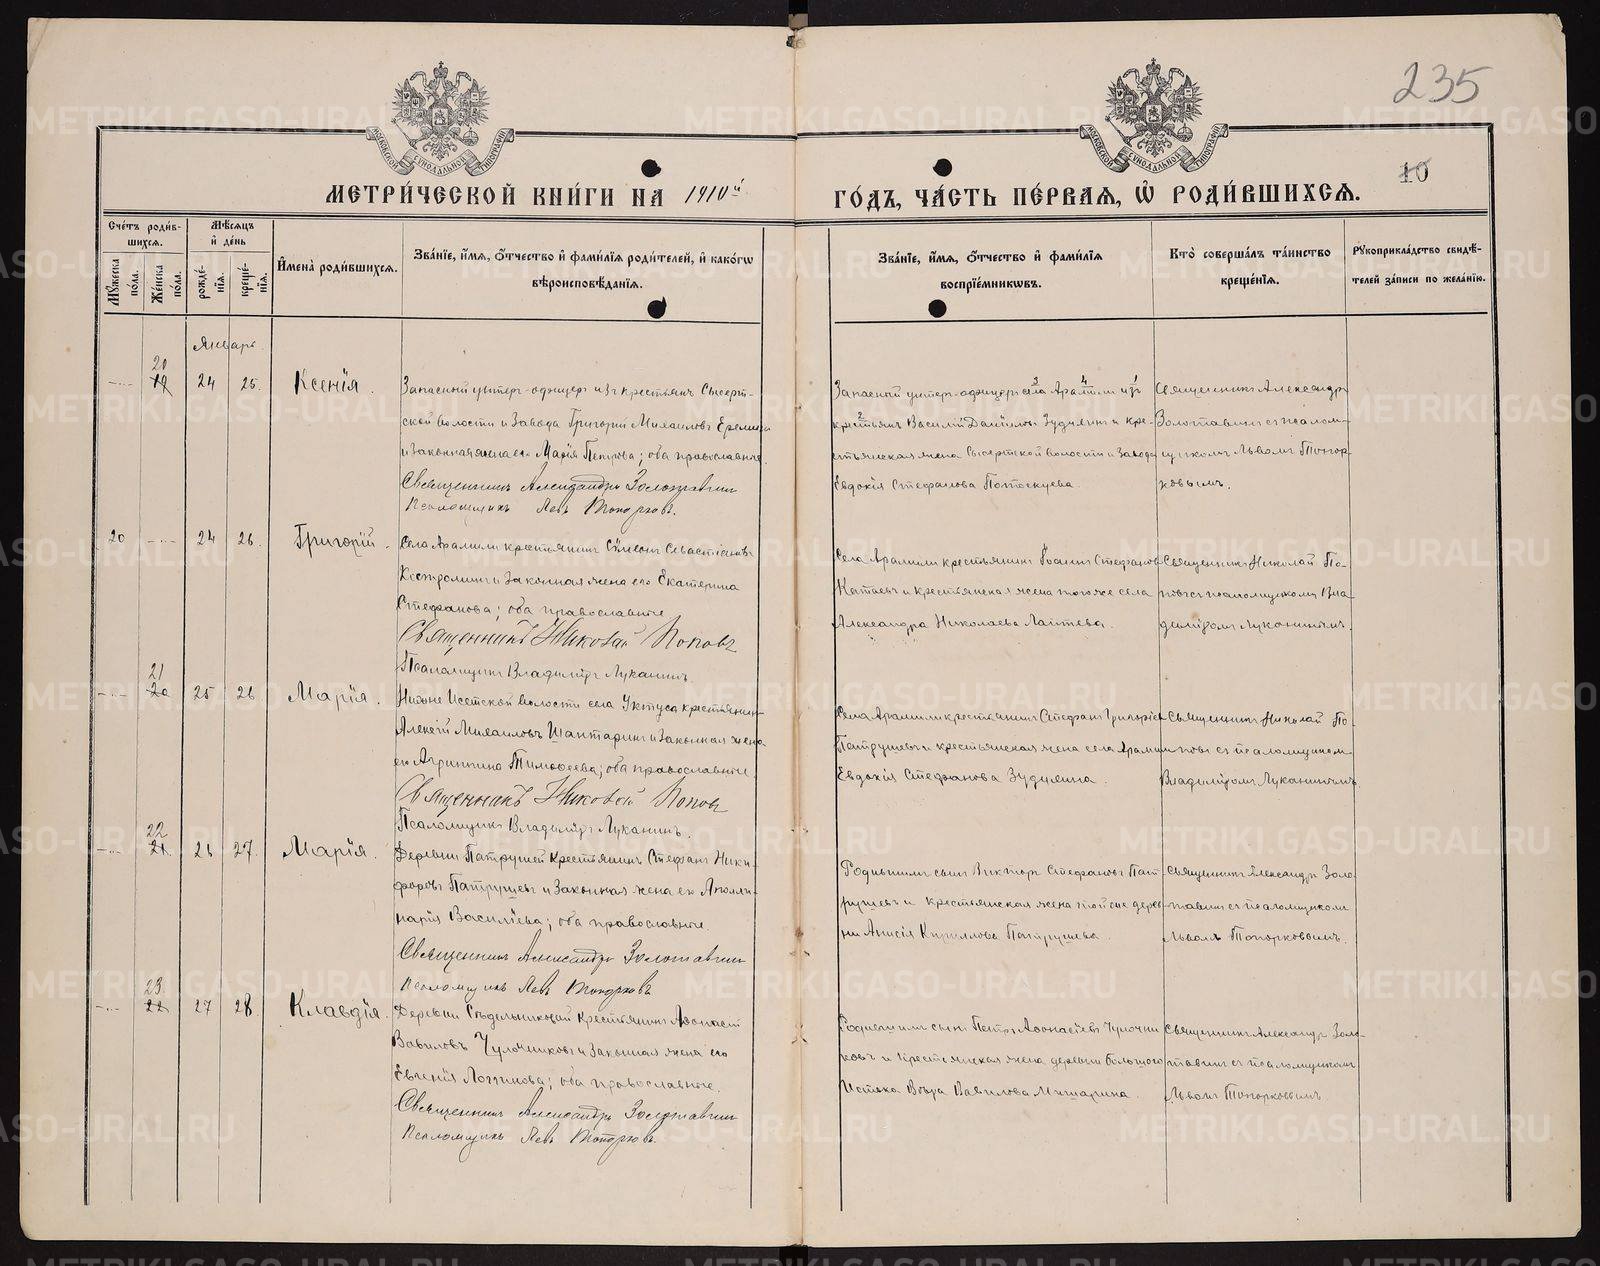 235
10
МОСКОВСКОЙ СѴНОДАЛЬНОЙ ТИПОГРАФІИ
МОСКОВСКОЙ СѴНОДАЛЬНОЙ ТИПОГРАФІИ
МЕТРИ́ЧЕСКОЙ КНИ́ГИ НА 1910й ГО́ДЪ, ЧА́СТЬ ПЕ́РВАЯ, Ѡ҆ РОДИ́ВШИХСѦ.
Сче́тъ роди́в-
шихсѧ.
Мꙋ́жеска по́ла.
Же́нска по́ла.
Мѣ́сѧцъ
и҆ де́нь
рожде́-
нїѧ.
креще́-
нїѧ.
И҆мена̀ роди́вшихсѧ.
Зва́нїе, и҆́мѧ, ѻ҆́тчество и҆ фами́лїѧ роди́телей, и҆ како́гѡ
вѣроисповѣ́данїѧ.
Зва́нїе, и҆́мѧ, ѻ҆́тчество и҆ фами́лїѧ
воспрїе́мникѡвъ.
Кто̀ соверша́лъ та́инство
креще́нїѧ.
Рꙋкоприкла́дство свидѣ́-
телей за́писи по жела́нїю.
Январь.
20
19 24 25. Ксенія.
Запасный унтеръ-офицеръ изъ крестьянъ Сысерт-
ской волости и Завода Григорій Михаиловъ
и законная жена его Марія Петрова; оба православные.
Священникъ Александръ Золотавинъ
Псаломщикъ Левъ Топорковъ.
Запасный унтеръ-офицеръ села Арамили изъ
3 4 1
2
крестьянъ Василій Даніиловъ Зудилинъ и кре-
стьянская жена Сысертской волости и Завода
Евдокія Стефанова Потоскуева.
Священникъ Александръ
Золотавинъ съ псалом-
щикомъ Львомъ Топор-
ковымъ.
20 24 26. Григорій.
Села Арамили крестьянинъ Сѵмеонъ Севастіановъ
Костроминъ и Законная жена его Екатерина
Стефанова; оба православные
Священникъ Николай Поповъ
Псаломщикъ Владиміръ Луканинъ.
Села Арамили крестьянинъ Іоаннъ Стефановъ
Катаевъ и крестьянская жена того же села
Александра Николаева Лаптева.
Священникъ Николай По-
повъ съ псаломщикомъ Вла-
диміромъ Луканинымъ.
21
20 25 26 Марія.
Нижне Исетской волости села Уктуса крестьянинъ
Алексій Михаиловъ Шантаринъ и Законная жена
его Агрипина Тимоѳеева; оба православные.
Священникъ Николай Поповъ
Псаломщикъ Владиміръ Луканинъ.
Села Арамили крестьянинъ Стефанъ Григорьевъ
Патрушевъ и крестьянская жена села Арамили
Евдокія Стефанова Зудилина.
Священникъ Николай По-
повъ съ псаломщикомъ
Владиміромъ Луканинымъ.
22
21 26 27. Марія.
Деревни Патрушей Крестьянинъ Стефанъ Ники-
форовъ Патрушевъ и Законная жена его Аполли-
нарія Василіева; оба православные.
Священникъ Александръ Золотавинъ
Псаломщикъ Левъ Топорковъ
Родившихъ сынъ Викторъ Стефановъ Пат-
рушевъ и крестьянская жена той же дерев-
ни Анисія Кириллова Патрушева.
Священникъ Александръ Золо-
тавинъ съ псаломщикомъ
Львомъ Топорковымъ.
23
22 27 28. Клавдія.
Деревни Седельниковой Крестьянинъ Аѳонасій
Вавиловъ Чулочниковъ и Законная жена его
Евгенія Логгинова; оба православные.
Священникъ Александръ Золотавинъ
Псаломщикъ Левъ Топорковъ.
Родившихъ сынъ Петръ Аѳонасіевъ Чулочни-
ковъ и крестьянская жена деревни Большого
Истока Вѣра Вавилова
Священникъ Александръ Золо-
тавинъ съ псаломщикомъ
Львомъ Топорковымъ
METRIKI.GASO-URAL.RU